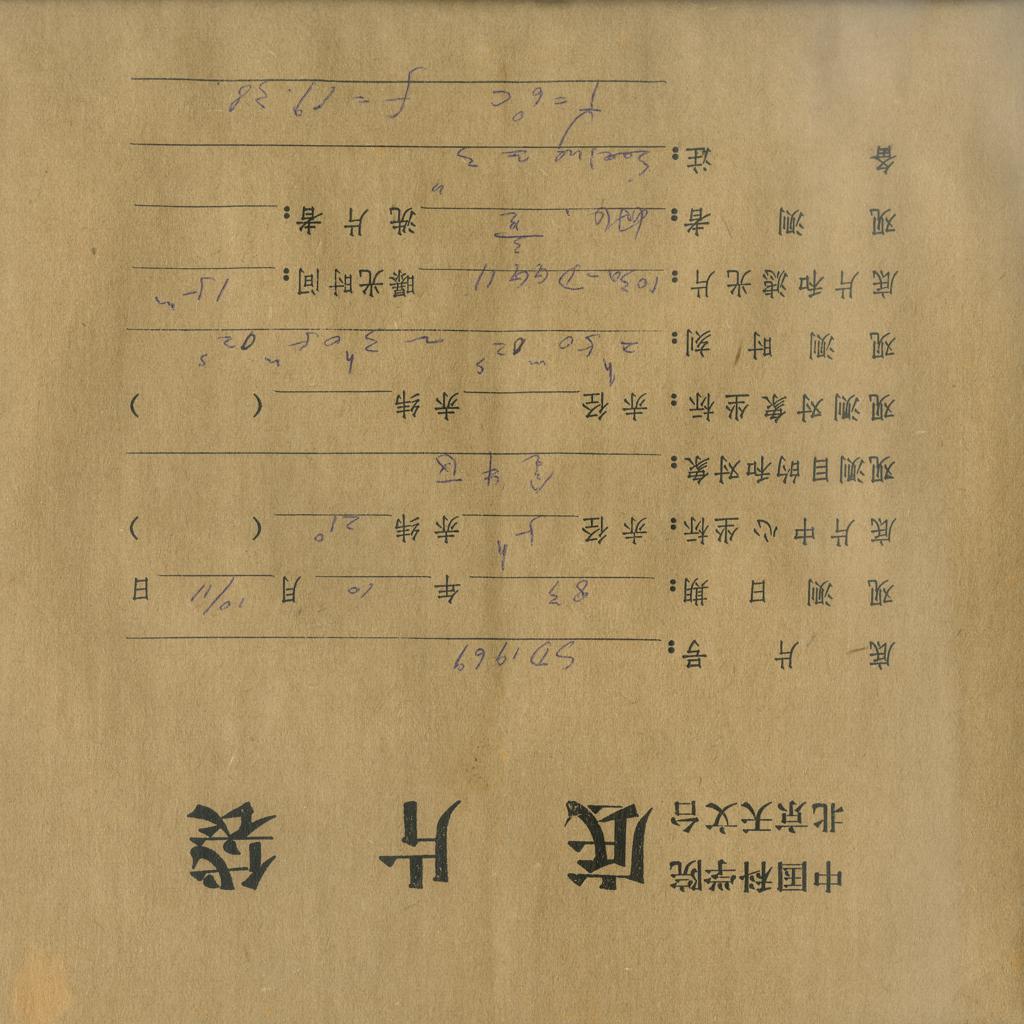 中国科学院
北京天文台
底片袋
底片号: SD1969
观测日期: 83 年 10 月 10/11 日
底片中心坐标: 赤径 5h 赤纬 21° ( )
观测目的和对象: 金牛区
观测对象坐标: 赤径 赤纬 ( )
观测时刻: 2h50m02s ~ 3h05m02s
底片和滤光片: 103a-D GG11 曝光时间: 15m
观测者: 洗片者:
备注: Seeing ≈ 3"
T=6°C f=19.38